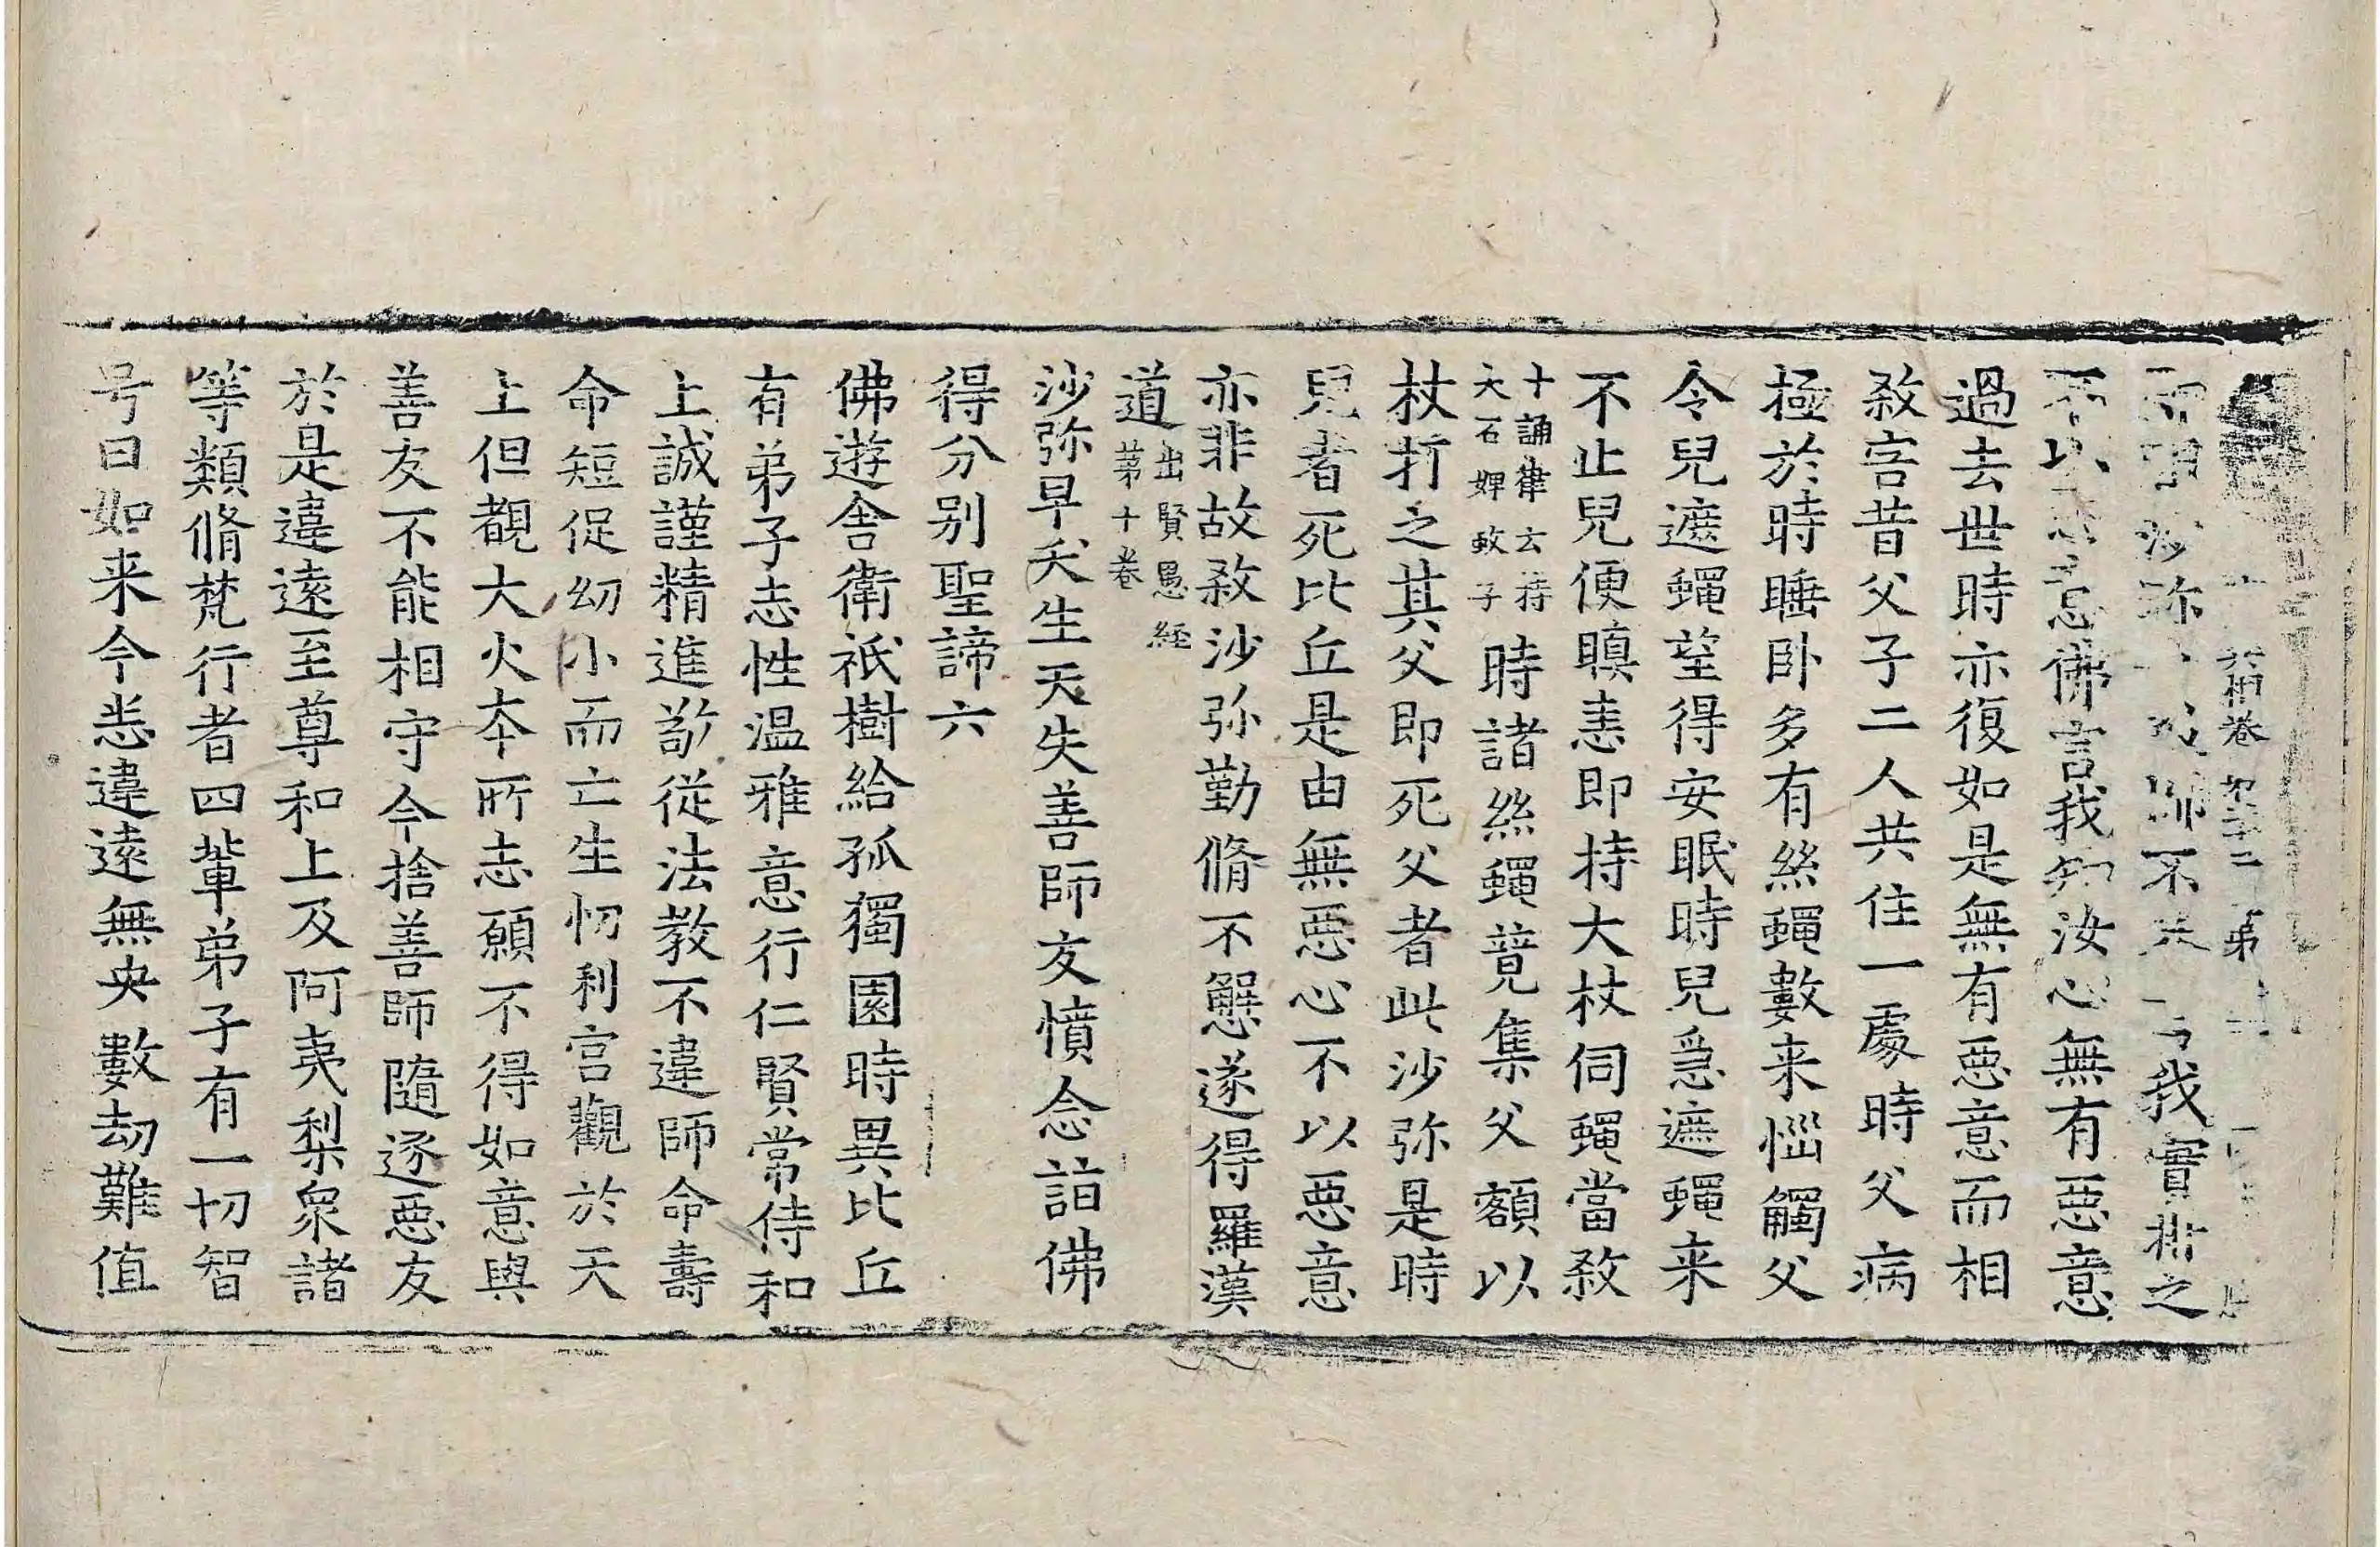 相卷第二 第
沙弥 師不 我實非之
不以 惡 佛言我知汝心無有惡意
過去世時亦復如是無有惡意而相
殺害昔父子二人共住一處時父病
極於時睡卧多有𮈔蠅數来惱觸父
令兒遮蠅望得安眠時兒急遮蠅来
不止兒便瞋恚即持大杖伺蠅當殺
十誦律云持大石婢致子時諸𮈔蠅竟集父額以
杖打之其父即死父者此沙弥是時
兒者死比丘是由無惡心不以惡意
亦非故殺沙弥勤脩不懈遂得羅漢
道出賢愚経第十卷
沙弥早夭生天失善師友憤念詣佛
得分别聖諦六
佛遊舍衛祇樹給孤獨園時異比丘
有弟子志性温雅意行仁賢常侍和
上誠謹精進敬從法教不違師命壽
命短促幼小而亡生忉利宫觀於天
上但覩大火夲所志願不得如意與
善友不能相守今捨善師隨逐惡友
於是違遠至尊和上及阿夷梨衆諸
等類脩梵行者四軰弟子有一切智
号曰如来今悉違遠無央數劫難值